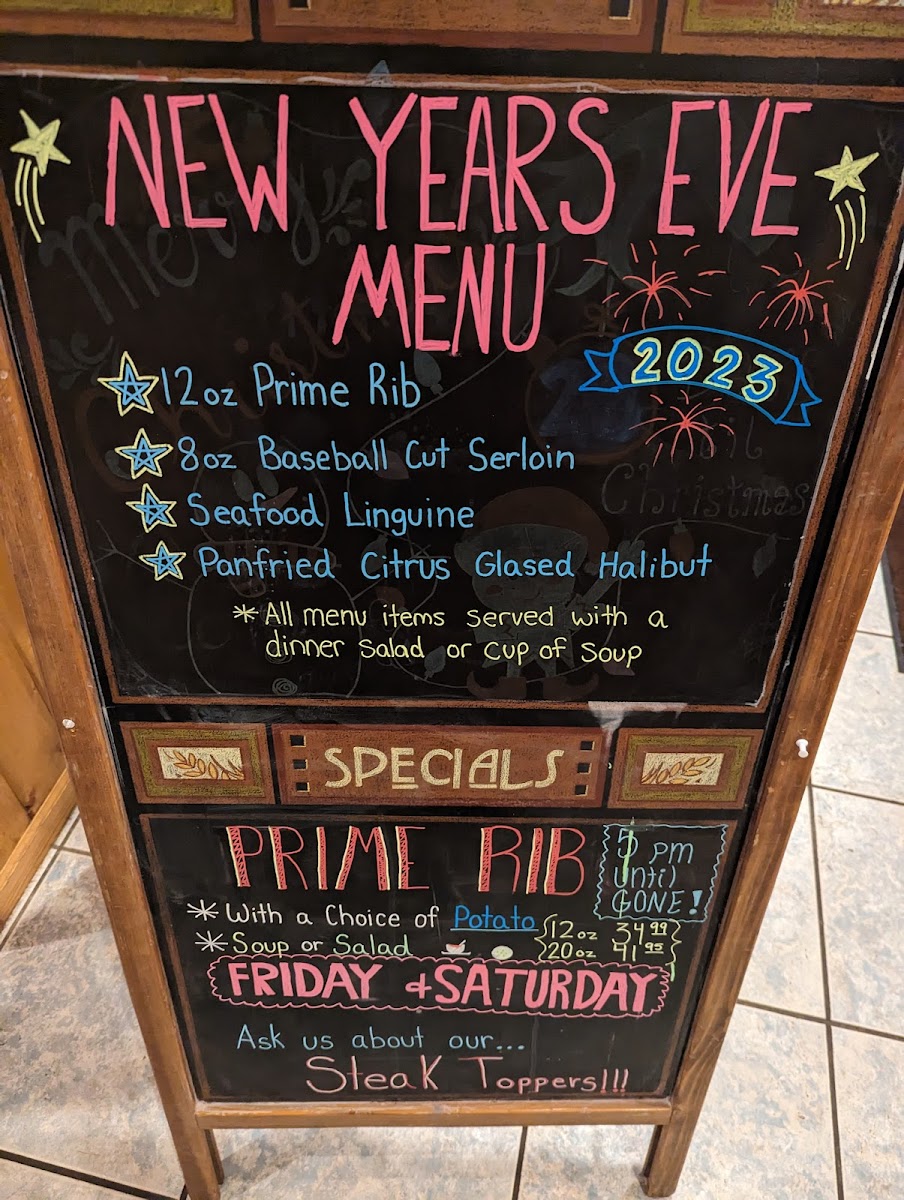 NEW YEARS EVE
MENU
2023
12oz Prime Rib
8oz Baseball Cut Serloin
Seafood Linguine
Panfried Citrus Glased Halibut
*All menu items served with a
dinner salad or cup of soup
Merry
Christmas
Christmas
SPECIALS
PRIME RIB
5 pm
until
GONE!
*With a Choice of Potato
*Soup or Salad
12oz 34.99
20oz 41.95
FRIDAY & SATURDAY
Ask us about our...
Steak Toppers!!!